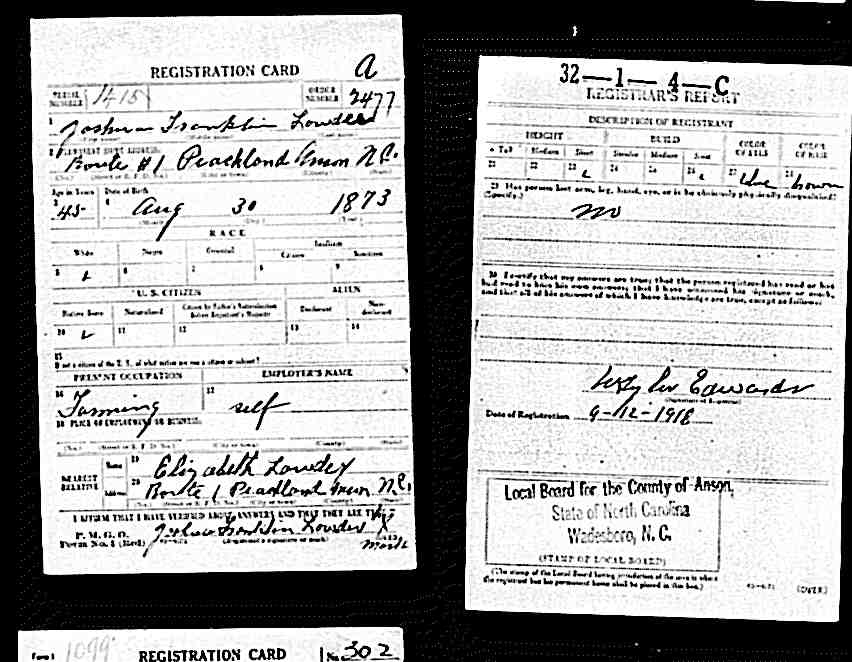 REGISTRATION CARD A
SERIAL NUMBER 1415 ORDER NUMBER 2477
1 Joshua Franklin Lowder
2 PERMANENT HOME ADDRESS:
Route #1 Peachland Anson N.C.
(No.) (Street or R. F. D. No.) (City or town) (County) (State)
Age in Years Date of Birth
3 45 4 Aug 30 1873
(Month.) (Day.) (Year.)
RACE
White Negro Oriental Indian
Citizen Noncitizen
5 6 7 8 9
U. S. CITIZEN ALIEN
Native Born Naturalized Citizen by Father's Naturalization Before Registrant's Majority Declarant Non-declarant
10 11 12 13 14
15
If not a citizen of the U. S., of what nation are you a citizen or subject?
PRESENT OCCUPATION EMPLOYER'S NAME
16 Farming 17 self
18 PLACE OF EMPLOYMENT OR BUSINESS:
(No.) (Street or R. F. D. No.) (City or town) (County) (State)
NEAREST RELATIVE Name 19 Elizabeth Lowder
Address 20 Route 1 Peachland Anson N.C.
(No.) (Street or R. F. D. No.) (City or town) (County) (State)
I AFFIRM THAT I HAVE VERIFIED ABOVE ANSWERS AND THAT THEY ARE TRUE
P. M. G. O.
Form No. 1 (Red) Franklin Lowder X
(Registrant's signature or mark)
mark
32—1—4—C
REGISTRAR'S REPORT
DESCRIPTION OF REGISTRANT
HEIGHT BUILD COLOR OF EYES COLOR OF HAIR
Tall Medium Short Slender Medium Stout
21 22 23 24 25 26 27 blue 28 brown
29 Has person lost arm, leg, hand, eye, or is he obviously physically disqualified?
(Specify.) no
30 I certify that my answers are true; that the person registered has read or has
had read to him his own answers; that I have witnessed his signature or mark,
and that all of his answers of which I have knowledge are true, except as follows:
Edwards
(Signature of Registrar)
Date of Registration 9-12-1918
Local Board for the County of Anson,
State of North Carolina
Wadesboro, N. C.
(STAMP OF LOCAL BOARD)
(The stamp of the Local Board having jurisdiction of the area in which
the registrant has his permanent home shall be placed in this box.)
(OVER)
1099 REGISTRATION CARD No. 302